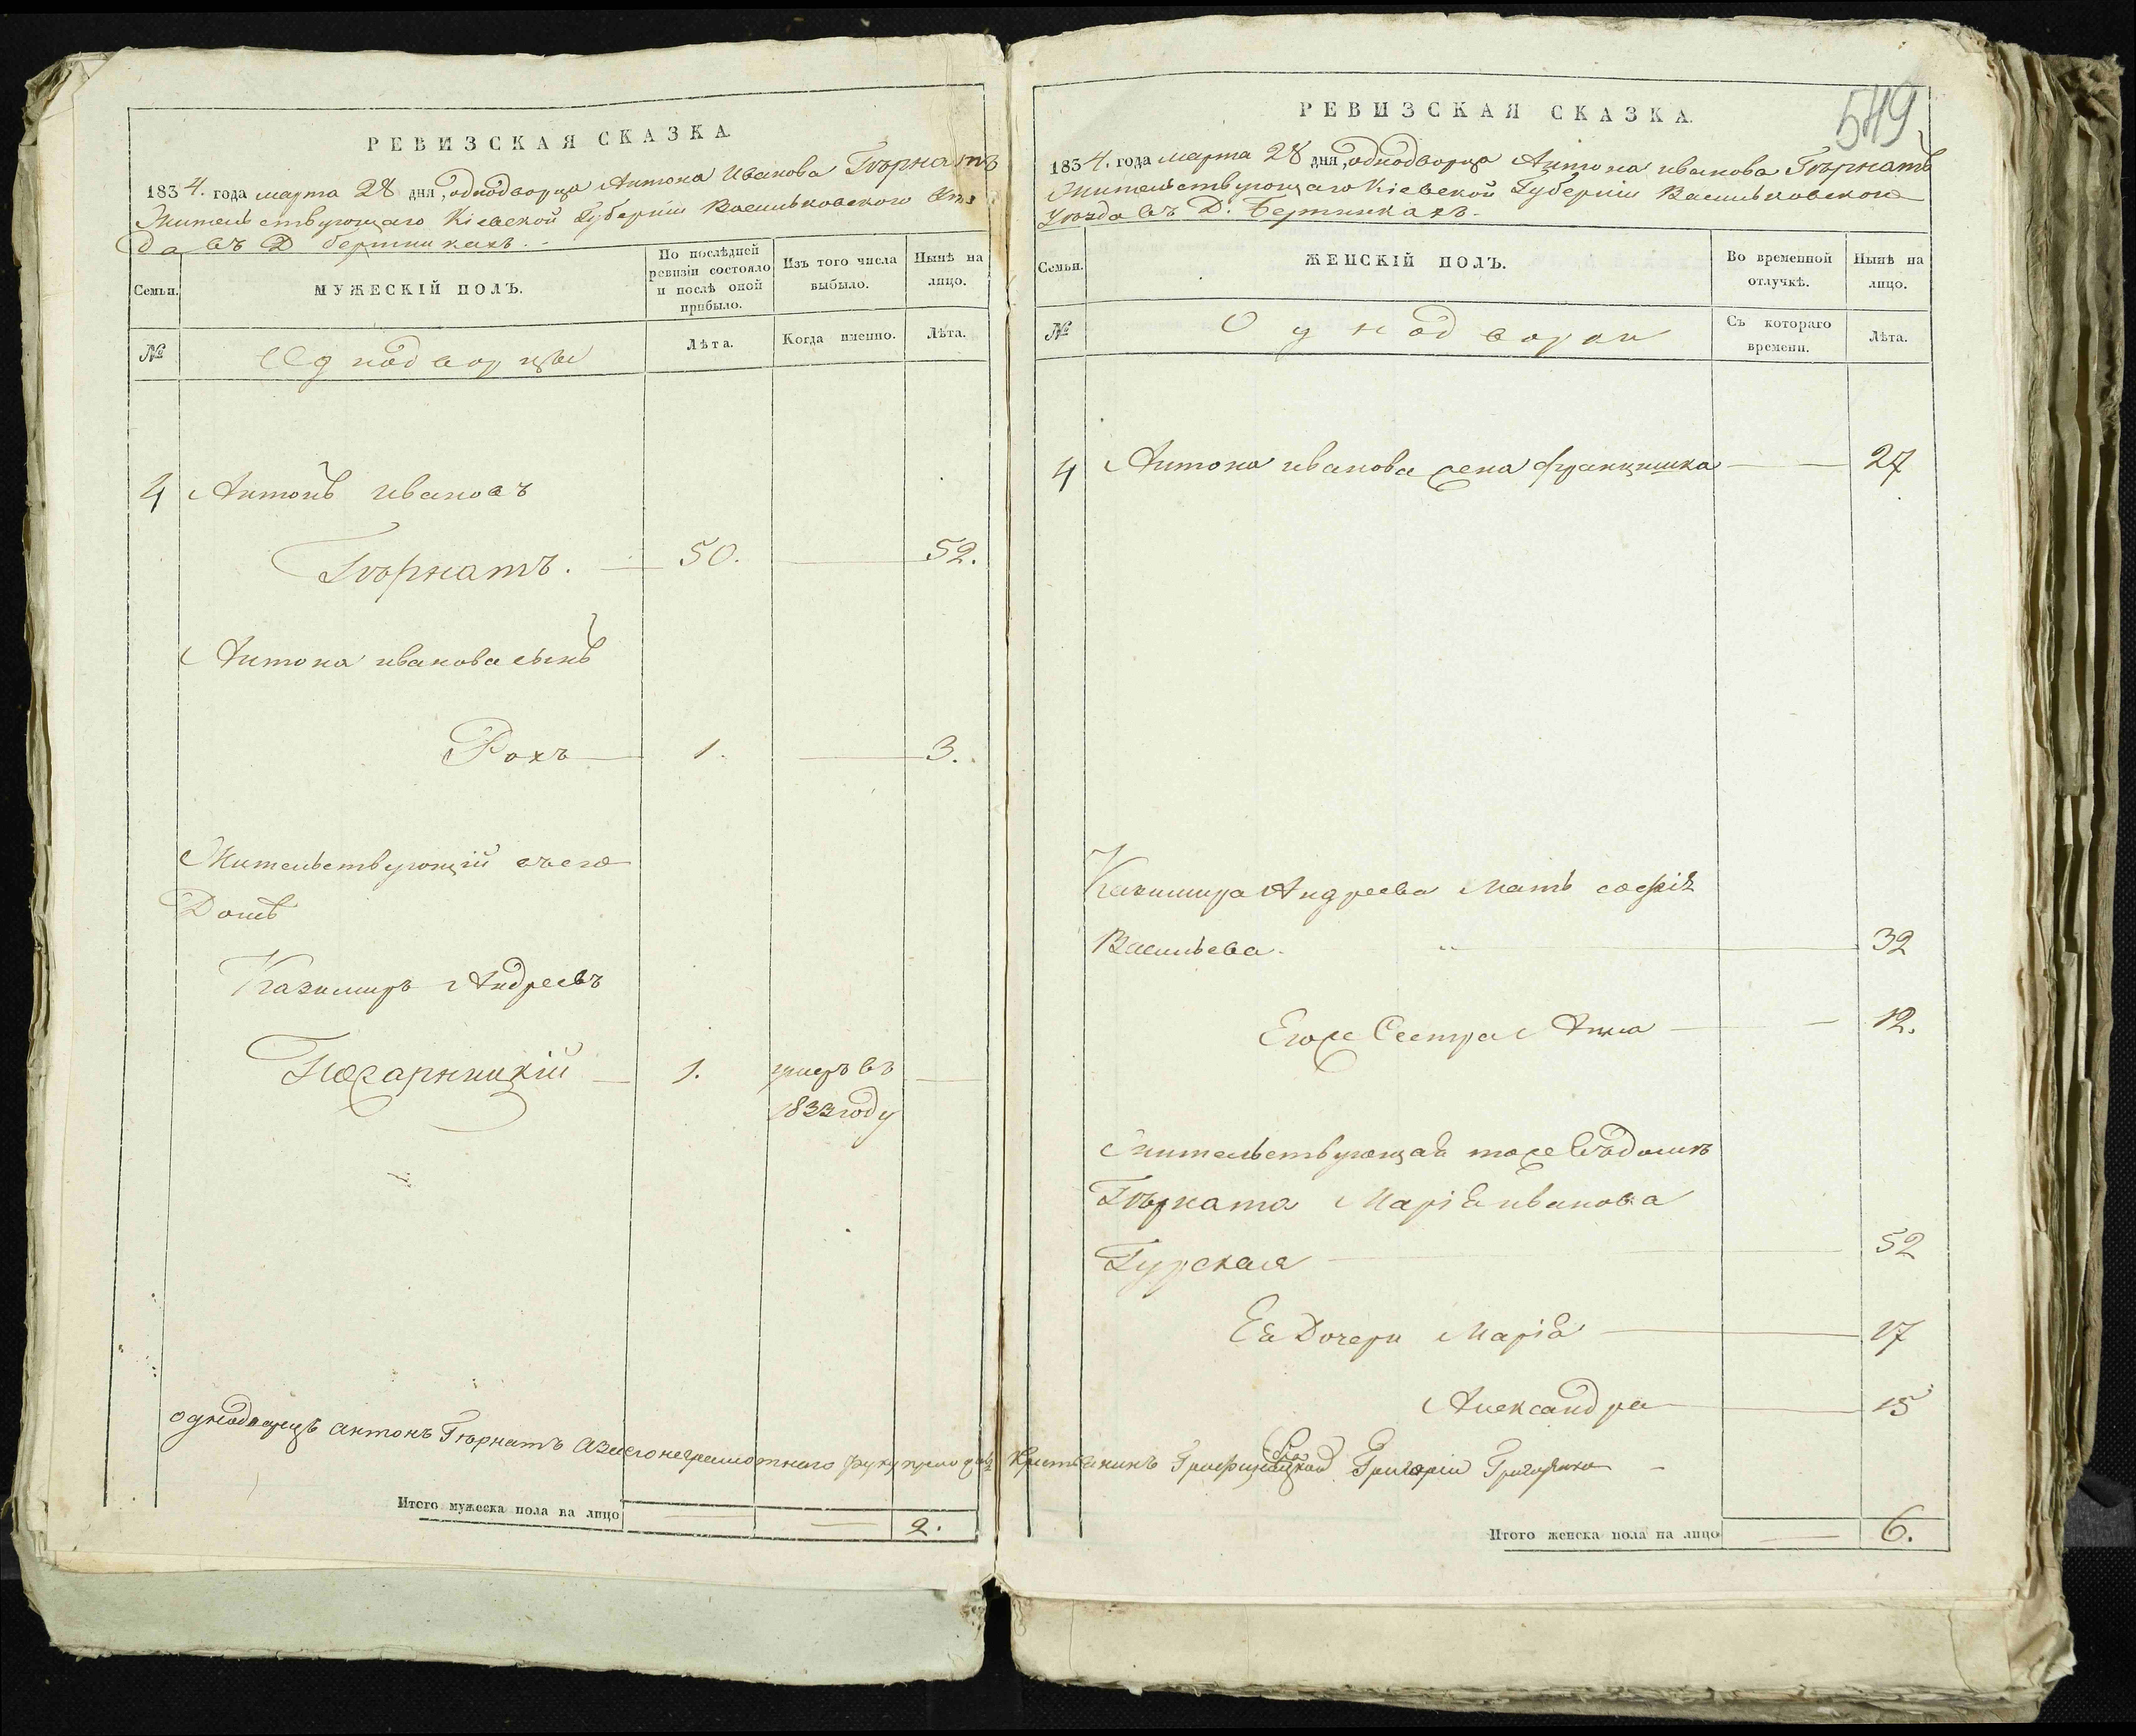 РЕВИЗСКАЯ СКАЗКА
1834. года марта 28 дня, однодворца Антона Иванова Гвърнатъ
Жительствующаго Кіевской Губерніи Васильковского Уѣз
да въ Д
Семьи.
МУЖЕСКІЙ ПОЛЪ.
По послѣдней ревизіи состояло и послѣ оной прибыло.
Изъ того числа выбыло.
Нынѣ на лицо.
№
Однодворцы
Лѣта.
Когда именно.
Лѣта.
4 Антонъ ивановъ
Гвърнатъ. 50. 52.
Антона иванова сынъ
Рохъ 1. 3.
Жительствующій въ его
Домѣ
Казимиръ Андреевъ
1. умеръ въ
1833 году
однодворецъ антонъ Гвърнатъ а за его неграмотнаго руку приложилъ
Итого мужеска пола на лицо
2.
549
РЕВИЗСКАЯ СКАЗКА.
1834. года марта 28 дня, однодворца Антона иванова Гвърнатъ
Жительствующаго Кіевской Губерніи Васильковского
Уѣзда въ Д.
Семьи.
ЖЕНСКІЙ ПОЛЪ.
Во временной отлучкѣ.
Нынѣ на лицо.
№
Однодворки
Съ котораго времени.
Лѣта.
4 Антона иванова жена францишка 27
Казимира Андреева Мать софія
Васильева. 32
Егоже Сестра Анна 12.
Жительствующая тоже въ домѣ
Гвърната Марія иванова
Гурская 52
Ея Дочери Марія 17
Александра 15
Григорій
Итого женска пола на лицо
6.